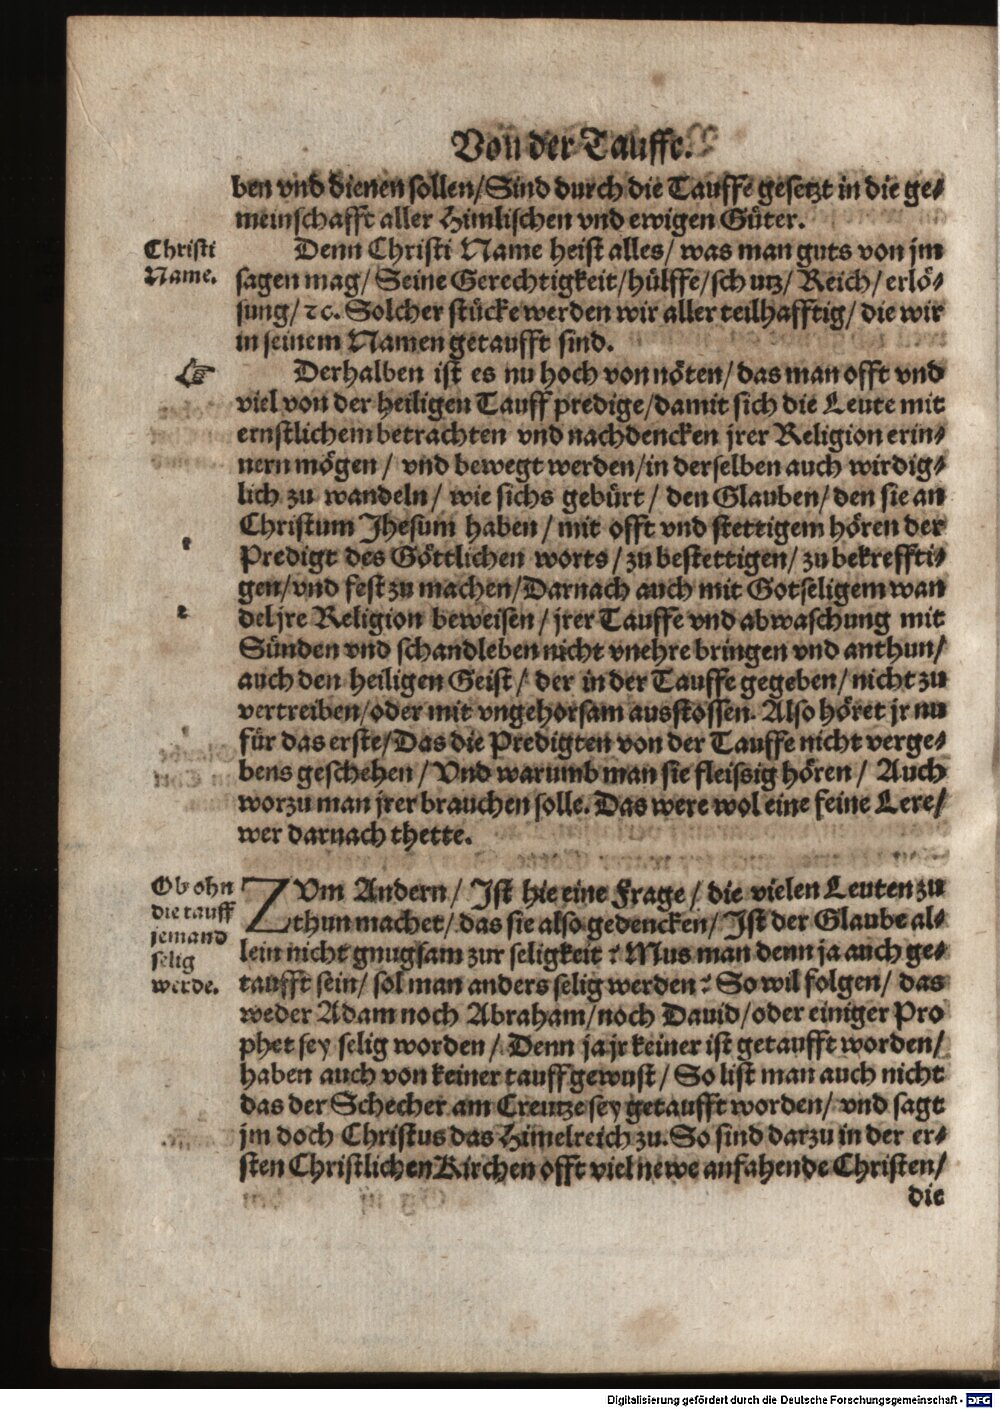 Von der Tauffe.
ben vnd dienen sollen/Sind durch die Tauffe gesetzt in die ge⸗
meinschafft aller Himlischen vnd ewigen Güter.
Christi
Name.
Denn Christi Name heist alles/ was man guts von jm
sagen mag/ Seine Gerechtigkeit/hülffe/sch utz/ Reich/ erlö⸗
sung/ ꝛc. Solcher stücke werden wir aller teilhafftig/ die wir
in seinem Namen getaufft sind.
☞
Derhalben ist es nu hoch von nöten/ das man offt vnd
viel von der heiligen Tauff predige/damit sich die Leute mit
ernstlichem betrachten vnd nachdencken jrer Religion erin⸗
nern mögen/ vnd bewegt werden/in derselben auch wirdig⸗
lich zu wandeln/ wie sichs gebürt/ den Glauben/ den sie an
Christum Jhesum haben/ mit offt vnd stettigem hören der
Predigt des Göttlichen worts/ zu bestettigen/ zu bekreffti⸗
gen/vnd fest zu machen/Darnach auch mit Gotseligem wan
del jre Religion beweisen/ jrer Tauffe vnd abwaschung mit
Sünden vnd schandleben nicht vnehre bringen vnd anthun/
auch den heiligen Geist/ der in der Tauffe gegeben/ nicht zu
vertreiben/oder mit vngehorsam ausstossen. Also höret jr nu
für das erste/Das die Predigten von der Tauffe nicht verge⸗
bens geschehen/Vnd warumb man sie fleissig hören/ Auch
worzu man jrer brauchen solle. Das were wol eine feine Lere/
wer darnach thette.
Ob ohn
die tauff
jemand
selig
werde.
ZVm Andern/ Jst hie eine Frage/ die vielen Leuten zu
thun machet/ das sie also gedencken/ Jst der Glaube al⸗
lein nicht gnugsam zur seligkeit? Mus man denn ja auch ge⸗
taufft sein/ sol man anders selig werden? So wil folgen/ das
weder Adam noch Abraham/noch Dauid/oder einiger Pro
phet sey selig worden/ Denn ja jr keiner ist getaufft worden/
haben auch von keiner tauff gewust/ So list man auch nicht
das der Schecher am Creutze sey getaufft worden/ vnd sagt
jm doch Christus das Himelreich zu. So sind darzu in der er⸗
sten Christlichen Kirchen offt viel newe anfahende Christen/
die
Digitalisierung gefördert durch die Deutsche Forschungsgemeinschaft - DFG